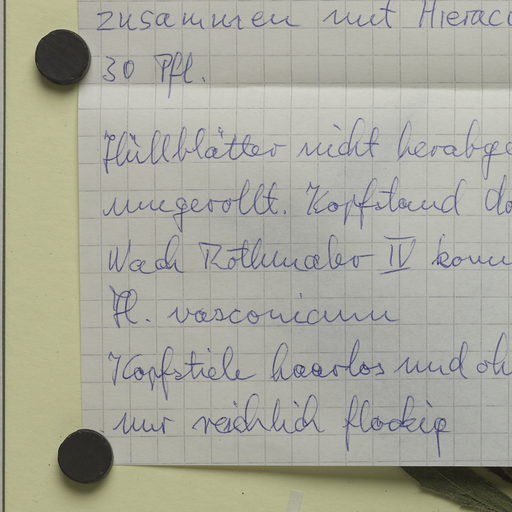 zusammen mit Hierac
30 Pfl.
Hüllblätter nicht herabge
umgerollt. Kopfstand do
Nach Rothmaler IV komm
H. vasconicum
Kopfstiele haarlos und oh
nur reichlich flockig